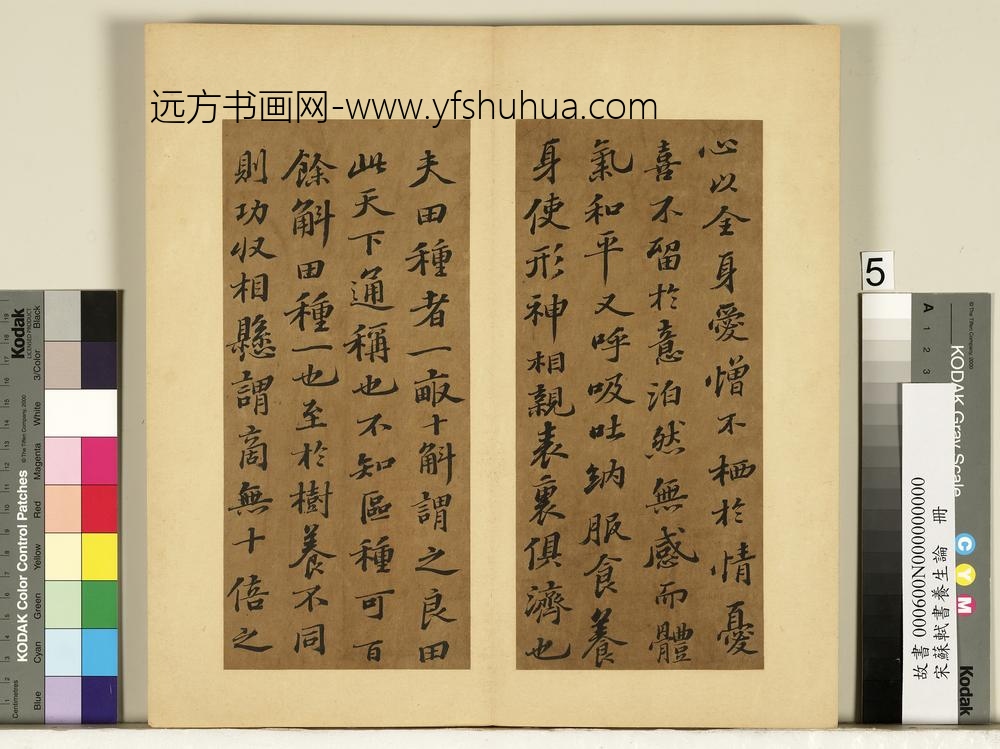 远方书画网-www.yfshuhua.com
心以全身愛憎不栖於情憂
喜不留於意泊然無感而體
氣和平又呼吸吐納服食養
身使形神相親表裏俱濟也
夫田種者一畝十斛謂之良田
此天下通稱也不知區種可百
餘斛田種一也至於樹養不同
則功收相懸謂啇無十倍之
5
故書 000600N000000000
宋蘇軾書養生論 冊
Kodak
LICENSED PRODUCT
Black
3/Color
White
Magenta
Red
Yellow
Green
Cyan
Blue
KODAK Color Control Patches
© The Tiffen Company, 2000
Centimetres
KODAK Gray Scale
© The Tiffen Company, 2000
A 1 2 3
C
Y
M
Kodak